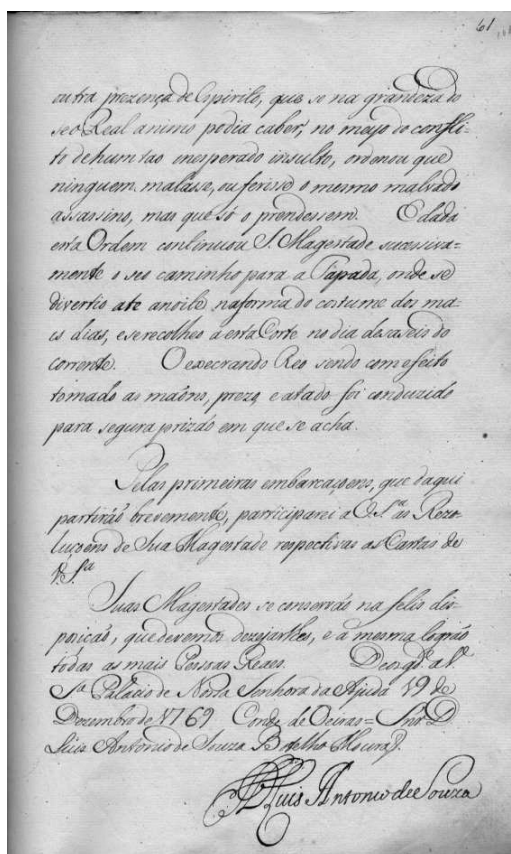 61
outra prezença de Espirito, que so na grandeza do
seo Real animo podia caber, no meyo do confli-
to de hum tao enesperado insulto, ordenou que
ninguem matasse, ou ferisse o mesmo malvado
assassino, mas que só o prendessem. E dada
esta Ordem continuou S. Magestade sucessiva-
mente o seo caminho para a Tapada, onde se
divertio ate anoite na forma do costume dos ma-
is dias, e se recolheo á esta Corte no dia dezaseis do
corrente. O execrando Reo sendo com efeito
tomado as maõns, prezo, e atado foi conduzido
para segura prizão em que se acha.
Pelas primeiras embarcaçoens, que daqui
partirão brevemente, participarei a V. S.ª as Rezo-
luçoens de Sua Magestade respectivas as Cartas de
V. S.ª
Suas Magestades se conservão na felis dis-
pozicão, que devemos dezejarlhes, e a mesma logrão
todas as mais Pessoas Reaes. Deos g.de a V.
S.ª Palacio de Nossa Senhora da Ajuda 19 de
Dezembro de 1769 Conde de Oeiras = Snr D
Luis Antonio de Souza Botelho Mourão.
D Luis Antonio de Souza